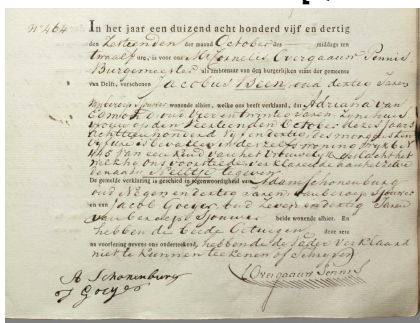 No 464 In het jaar een duizend acht honderd vijf en dertig
den Zestienden der maand October des middags ten
twaalf ure, is voor ons Mr. Cornelis Overgaauw Pennis
Burgemeester als Ambtenaar van den burgerlijken staat der gemeente
van Delft, verschenen Jacobus Been, oud dertig Jaren
van beroep Sjouwer wonende alhier, welke ons heeft verklaard, dat Adriana van
oud Vier en twintig Jaren, zyne huis
vrouw op den October dezes Jaars
achttien honderd Vyf en dertig, des morgens ten
Vyf ure is bevallen in derzelver woning Wyk
No 45 van een kind van het Vrouwelyk geslacht, het
welk hy ons voorstelde en verklaarde aan hetzelve
den naam Neeltje te geven
De gemelde verklaring is geschied in tegenwoordigheid van Adam Schonenburg
oud Negen en dertig Jaren van beroep Sjouwer
en van Jacob Goeyer, oud Zeven en dertig Jaren
van beroep Sjouwer beide wonende alhier. En
hebben de beide Getuigen deze acte
na voorlezing nevens ons onderteekend, hebbende de Vader verklaard
niet te kunnen teekenen of schryven
A Schonenburg
J Goeyer
C Overgaauw Pennis